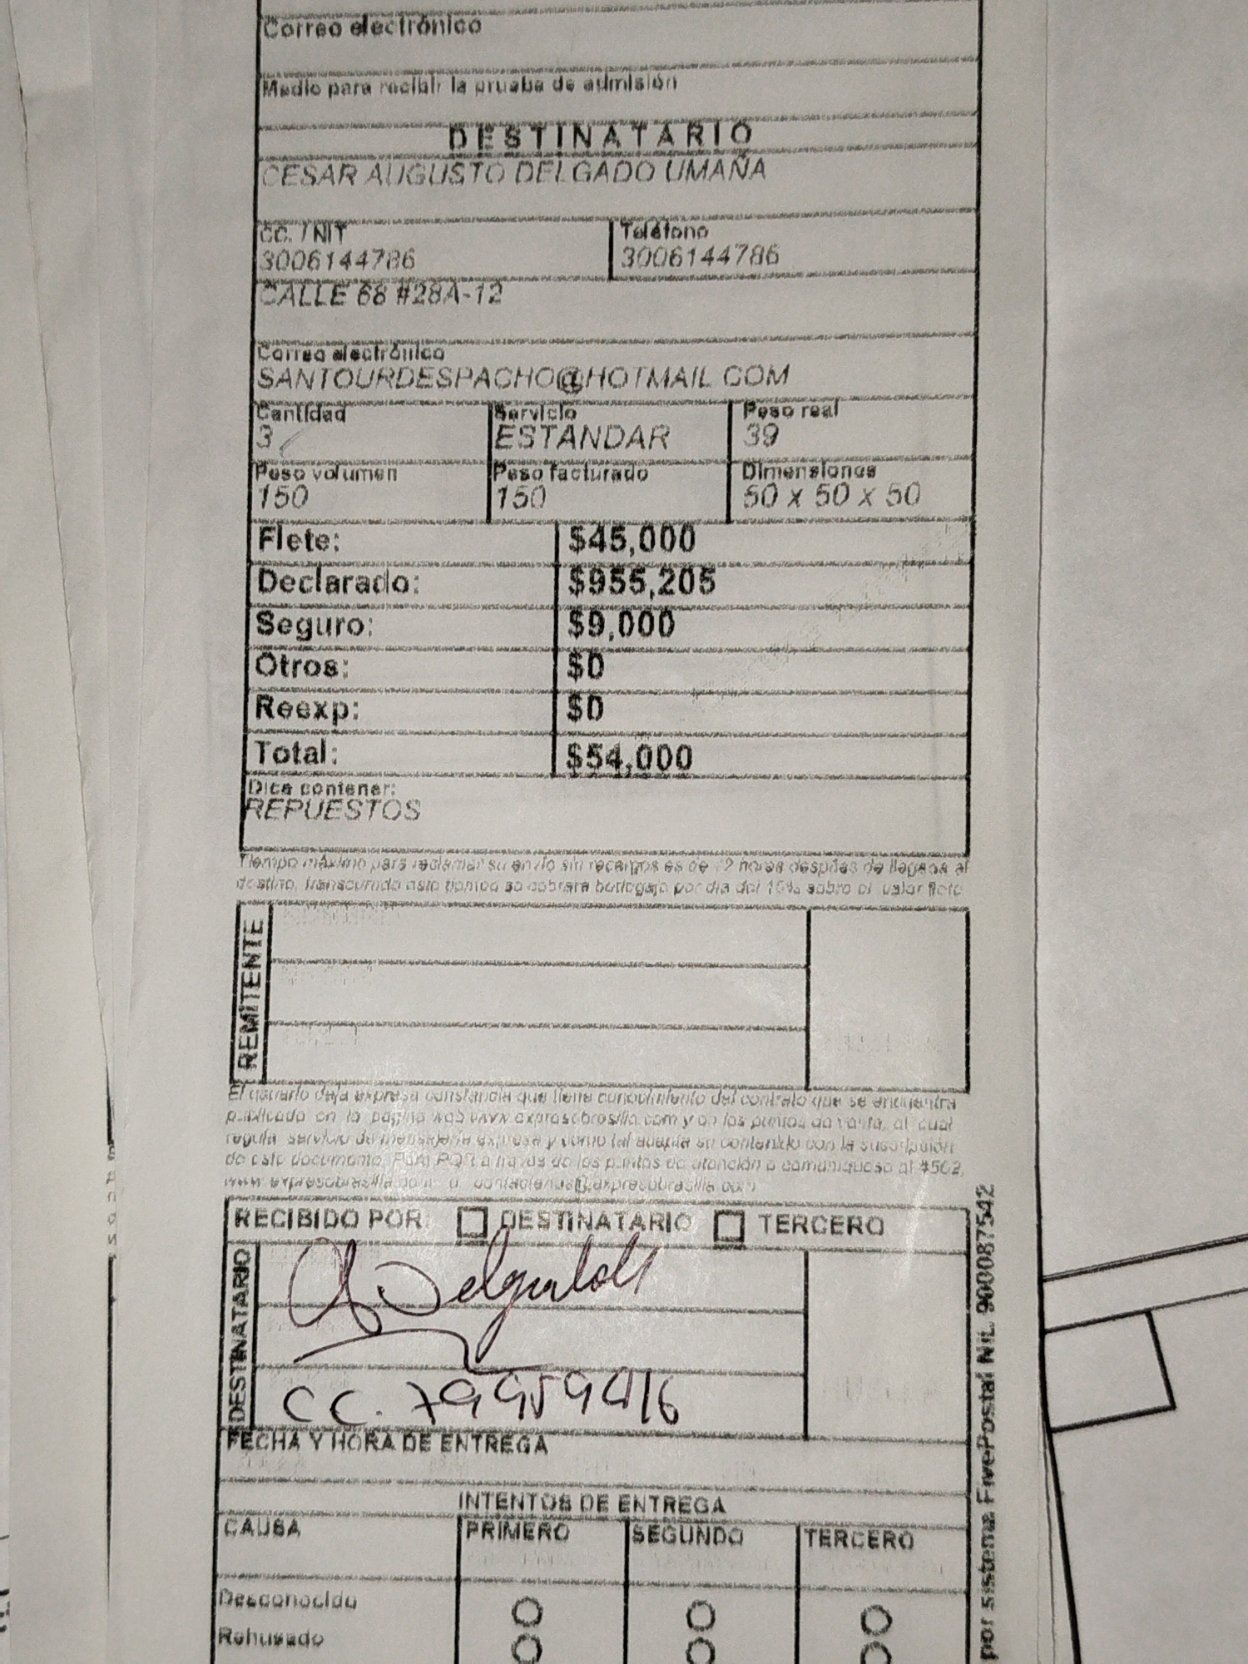 Correo electrónico
Medio para recibir la prueba de admisión
DESTINATARIO
CESAR AUGUSTO DELGADO UMAÑA
CC. / NIT
3006144786
Teléfono
3006144786
CALLE 68 #28A-12
Correo electrónico
SANTOURDESPACHO@HOTMAIL.COM
Cantidad
3
Servicio
ESTANDAR
Peso real
39
Peso volumen
150
Peso facturado
150
Dimensiones
50 x 50 x 50
Flete: $45,000
Declarado: $955,205
Seguro: $9,000
Otros: $0
Reexp: $0
Total: $54,000
Dice contener:
REPUESTOS
Tiempo máximo para reclamar su envío sin recargos es de 72 horas después de llegada al
destino, transcurrido este tiempo se cobrará bodegaje por día del 15% sobre el valor flete
REMITENTE
El usuario deja expresa constancia que tiene conocimiento del contrato que se encuentra
publicado en la página web www.expresobrasilia.com y en los puntos de venta, el cual
regula servicio de mensajería expresa y como tal acepta su contenido con la suscripción
de este documento. Para PQR a través de los puntos de atención o comuníquese al #502,
www.expresobrasilia.com o contactenos@expresobrasilia.com
RECIBIDO POR DESTINATARIO TERCERO
DESTINATARIO
CC. 79959416
FECHA Y HORA DE ENTREGA
INTENTOS DE ENTREGA
CAUSA PRIMERO SEGUNDO TERCERO
Desconocido
Rehusado
por sistema FivePostal Nit. 900087542